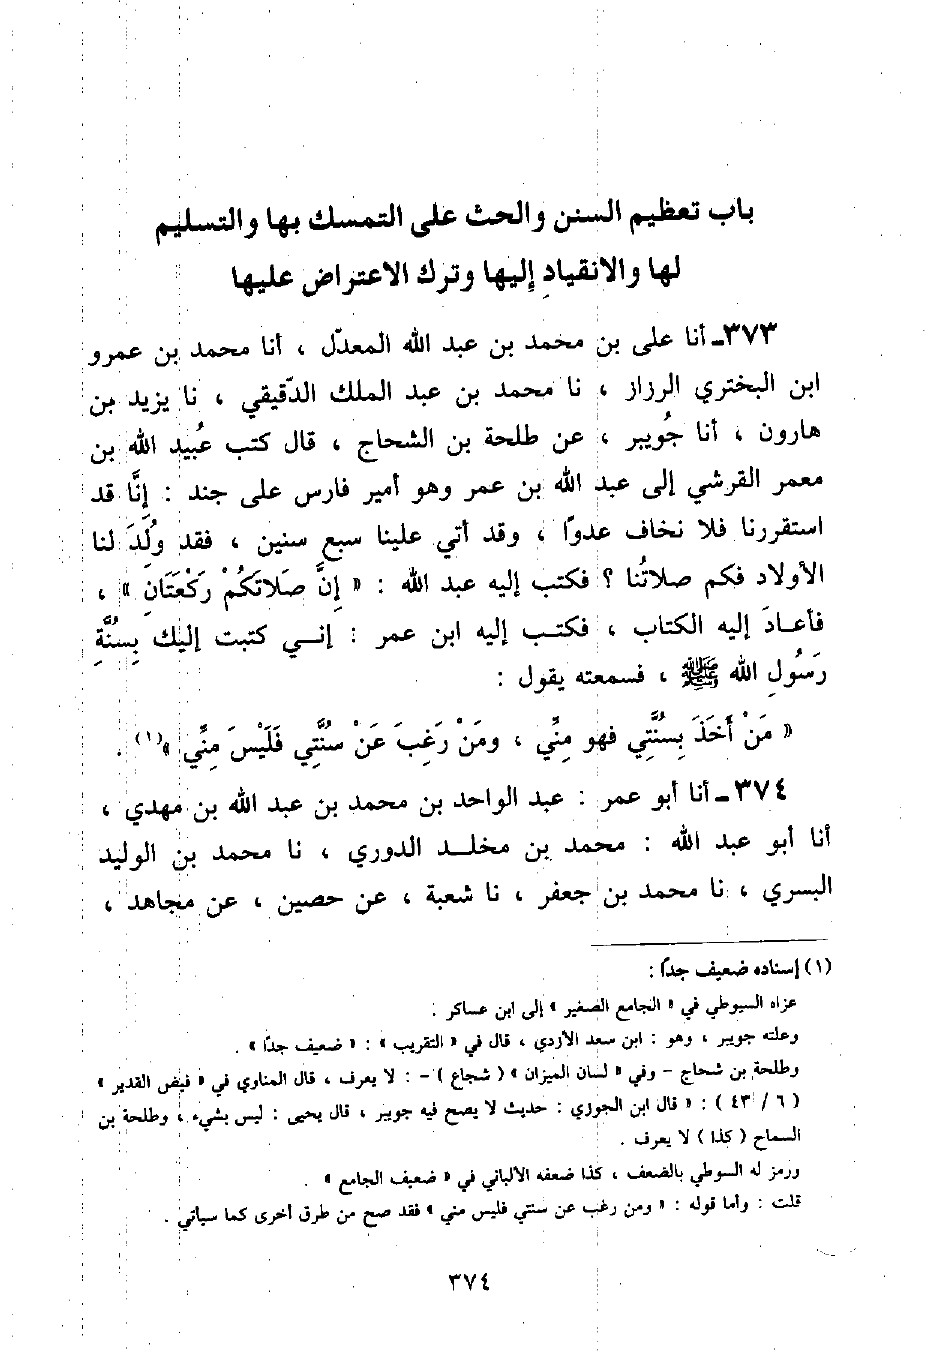 باب تعظيم السنن والحث على التمسك بها والتسليم
لها والانقيادِ إليها وترك الاعتراض عليها
٣٧٣ـ أنا على بن محمد بن عبد الله المعدّل ، أنا محمد بن عمرو
ابن البختري الرزاز ، نا محمد بن عبد الملك الدّقيقي ، نا يزيد بن
هارون ، أنا جُويبر ، عن طلحة بن الشحاج ، قال كتب عُبيد الله بن
معمر القرشي إلى عبد الله بن عمر وهو أمير فارس على جند : إنَّا قد
استقررنا فلا نخاف عدوًا ، وقد أتي علينا سبع سنين ، فقد وُلِّدَ لنا
الأولاد فكم صلاتُنا ؟ فكتب إليه عبد الله : « إِنَّ صَلاتَكُمْ رَكْعَتَانِ » ،
فأعـادَ إليه الكتاب ، فكتـب إليه ابن عمر : إنـي كتبت إليك بِسُنَّةِ
رَسُولِ الله ﷺ ، فسمعته يقول :
« مَنْ أَخَذَ بِسُنَّتِي فهو مِنِّي ، ومَنْ رَغِبَ عَنْ سُنَّتِي فَلَيْسَ مِنِّي »(١) .
٣٧٤ـ أنا أبو عمر : عبد الواحد بن محمد بن عبد الله بن مهدي ،
أنا أبو عبد الله : محمد بن مخلـد الدوري ، نا محمد بن الوليد
البسري ، نا محمد بن جعفر ، نا شعبة ، عن حصين ، عن مجاهد ،
(١) إسناده ضعيف جدًا :
عزاه السيوطي في « الجامع الصغير » إلى ابن عساكر .
وعلته جويبر ، وهو : ابن سعد الأزدي ، قال في « التقريب » : « ضعيف جدًا » .
وطلحة بن شحاج – وفي « لسان الميزان » ( شجاع ) – : لا يعرف ، قال المناوي في « فيض القدير »
( ٦ / ٤٣ ) : « قال ابن الجوزي : حديث لا يصح فيه جويبر ، قال يحيى : ليس بشيء ، وطلحة بن
السماح ( كذا ) لا يعرف .
ورمز له السوطي بالضعف ، كذا ضعفه الألباني في « ضعيف الجامع » .
قلت : وأما قوله : « ومن رغب عن سنتي فليس مني » فقد صح من طرق أخرى كما سيأتي .
٣٧٤